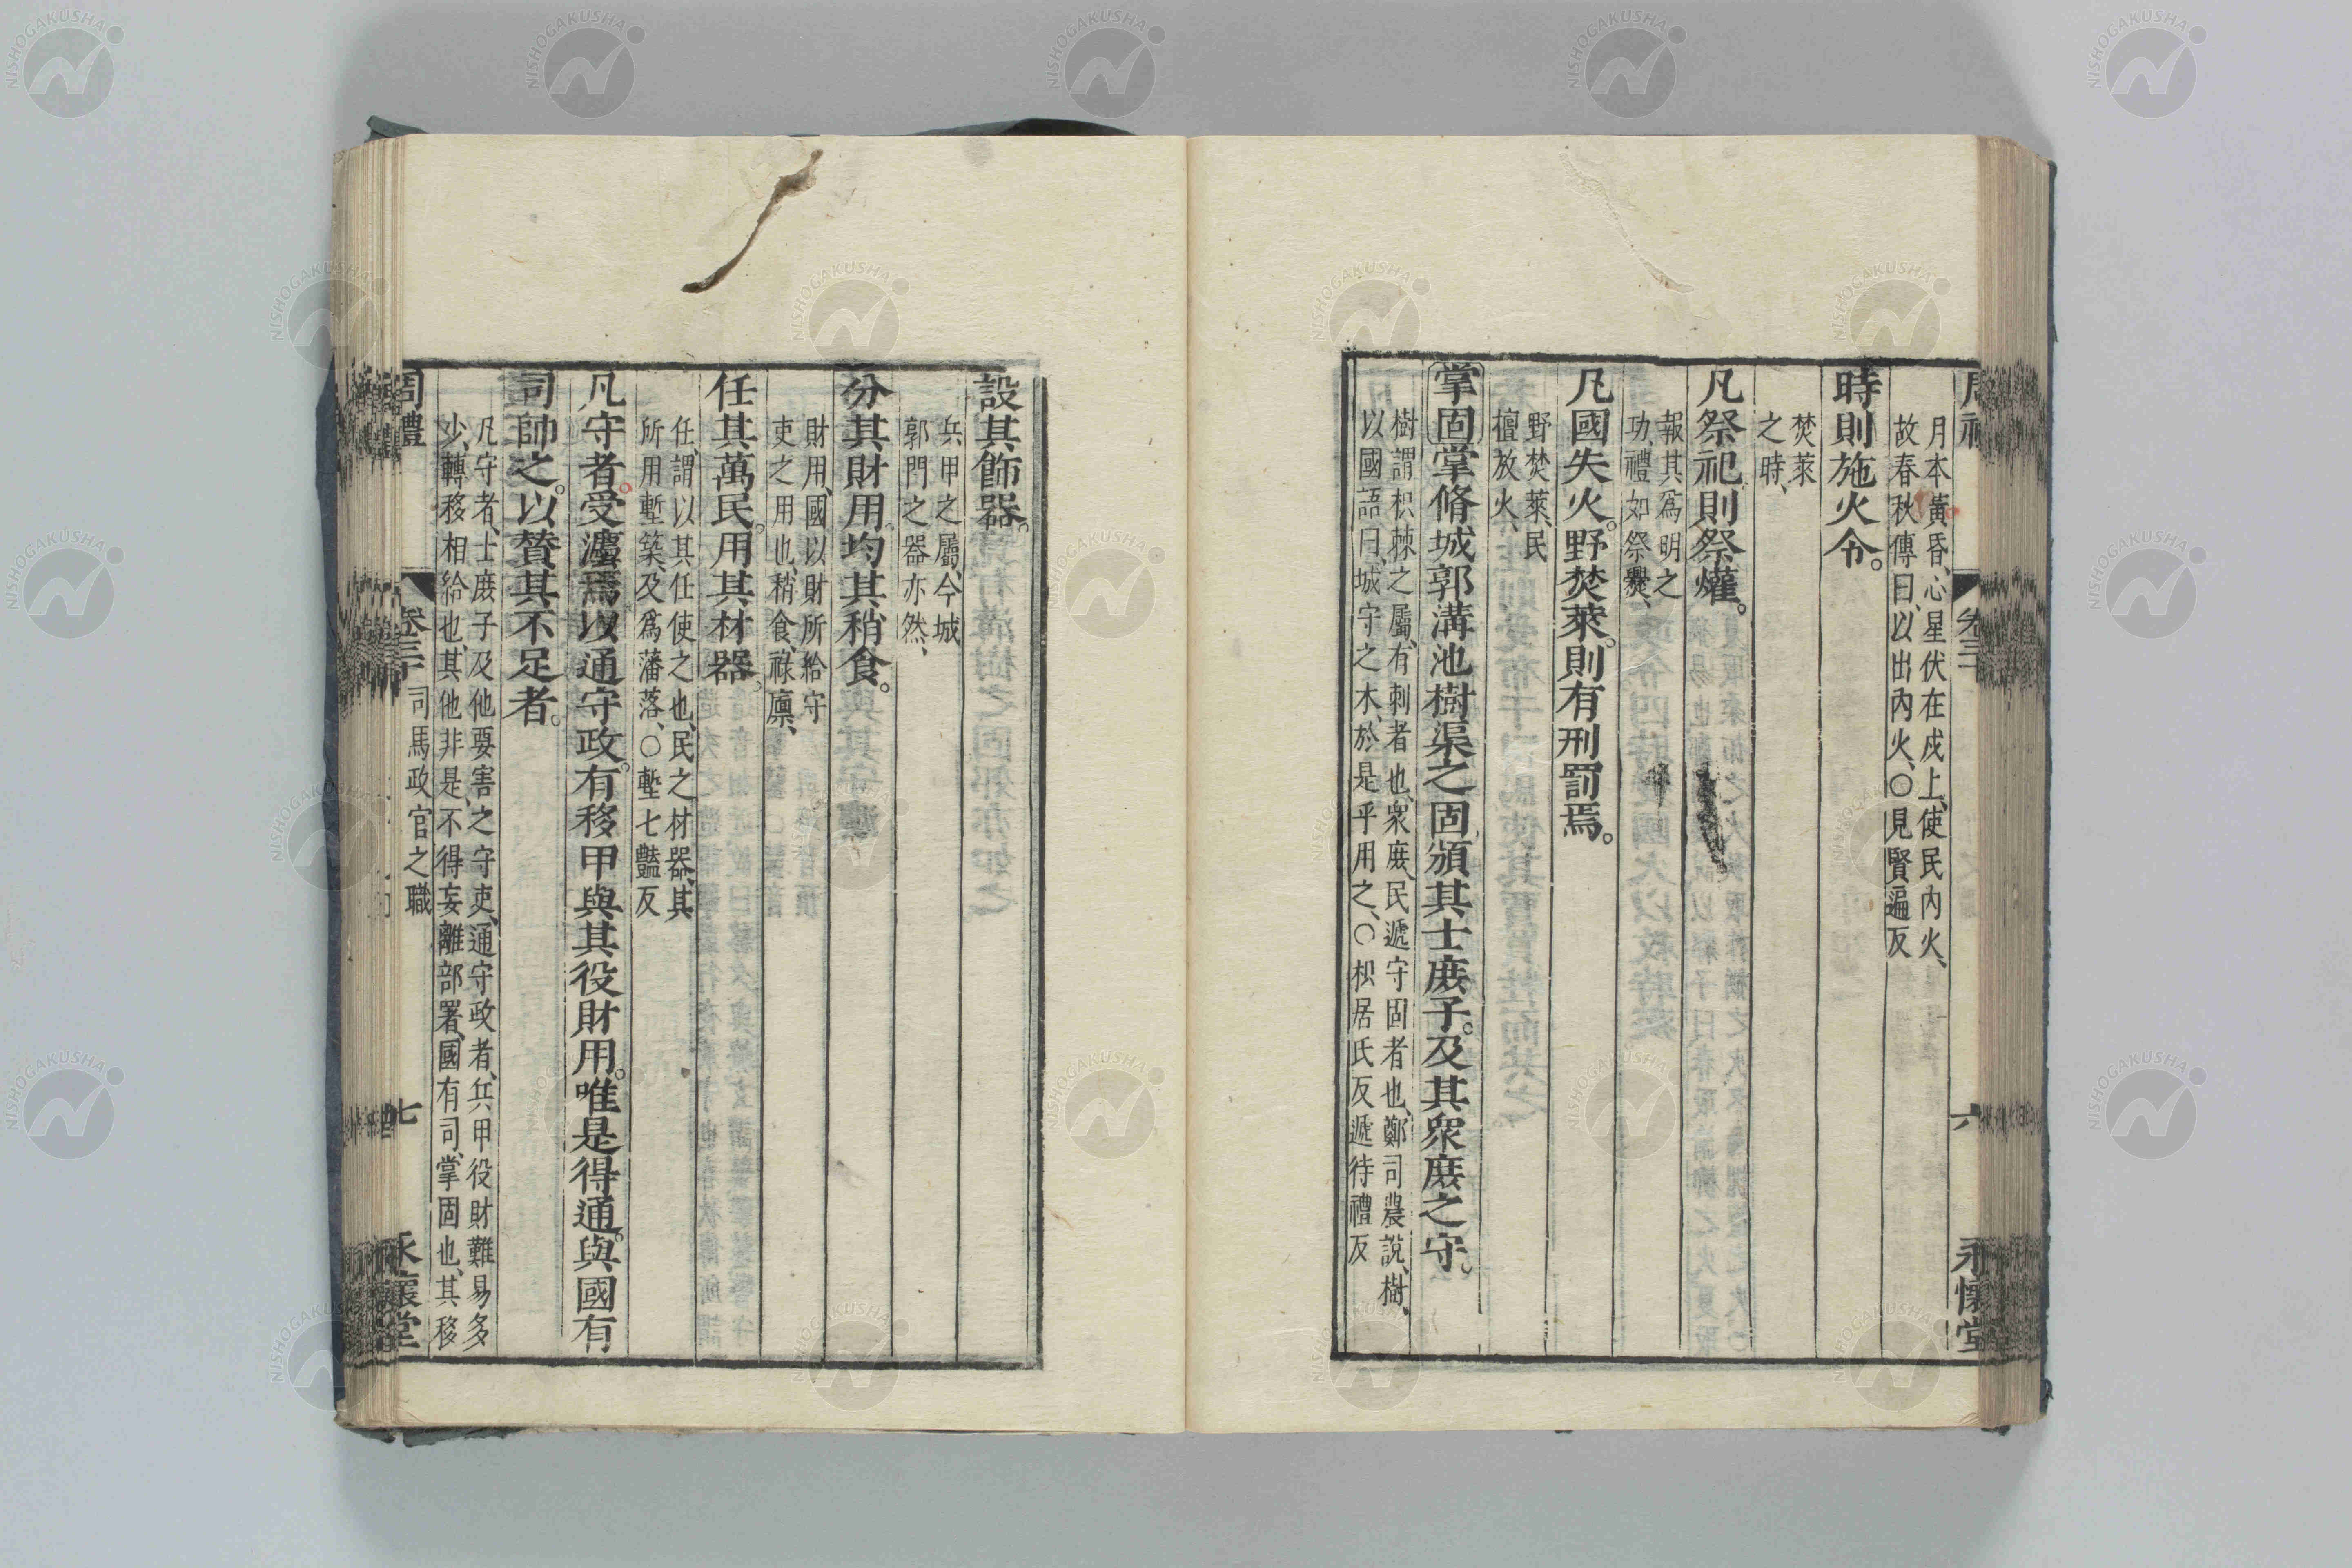 月本黃昏、心星伏在戍上、使民內火、
故春秋傳曰、以出內火、〇見賢遍反
時則施火令。
焚萊
之時、
凡祭祀則祭爟。
報其爲明之
功禮如祭爨、
凡國失火。野焚萊。則有刑罰焉。
掌固掌脩城郭溝池樹渠之固、頒其士庶子。及其衆庶之守。
樹謂枳棘之屬、有刺者也、衆庶、民遞守固者也、鄭司農說、樹、
以國語曰、城守之木、於是乎用之、〇枳居氏反遞待禮反
卷三十
六
永懷堂
設其飾器。
兵甲之屬、今城
郭門之器亦然、
分其財用。均其稍食。
財用、國以財所給守
吏之用也、稍食、祿廩、
任其萬民。用其材器。
任、謂以其任使之也、民之材器、其
所用塹築、及爲藩落、〇塹七豔反
凡守者。受灋焉以通守政。有移甲與其役財用。唯是得通。與國有
司帥之。以贊其不足者。
凡守者、士庶子及他要害之守吏、通守政者、兵甲役財難易多
少、轉移相給也、其他非是、不得妄離部署、國有司、掌固也、其移
周禮
卷三十
司馬政官之職
七
永懷堂
NISHOGAKUSHA